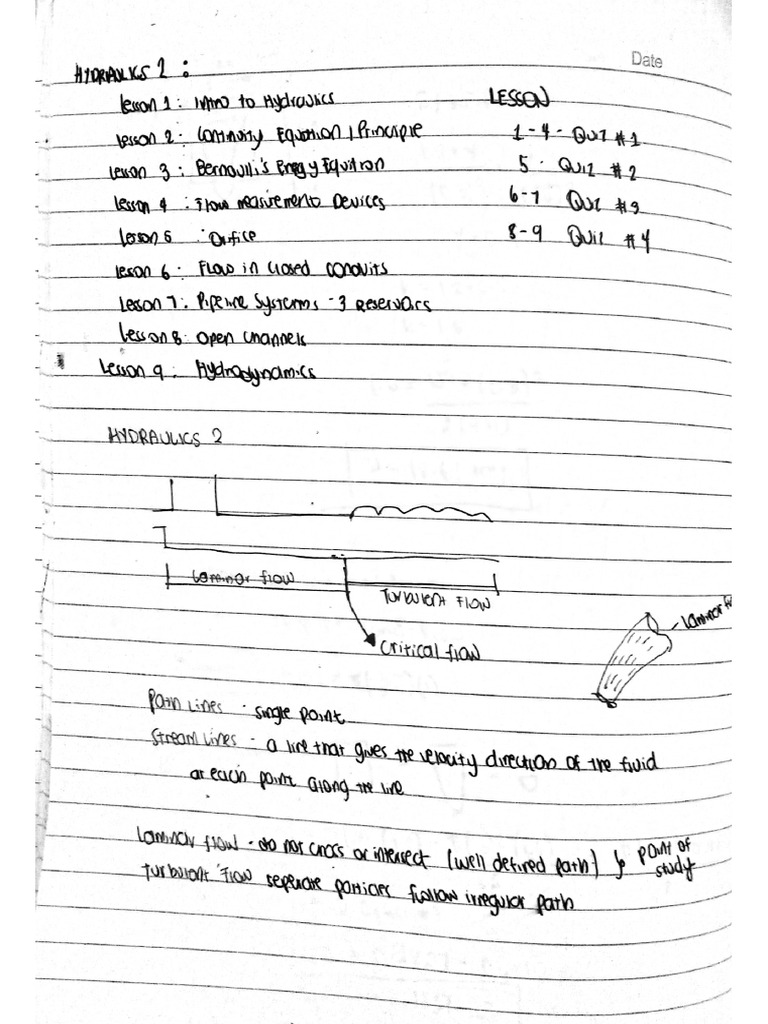 Date
HYDRAULICS 2 :
Lesson 1 : Intro to Hydraulics
LESSON
Lesson 2 : Continuity Equation / Principle
1 - 4 - Quiz #1
Lesson 3 : Bernoulli's Energy Equation
5 - Quiz #2
Lesson 4 : Flow measurement Devices
6-7 Quiz #3
Lesson 5 : Orifice
8-9 Quiz #4
Lesson 6 : Flow in closed conduits
Lesson 7 : Pipeline Systems - 3 Reservoirs
Lesson 8 : open channels
Lesson 9 : Hydrodynamics
HYDRAULICS 2
Laminar flow
TURBULENT FLOW
Critical flow
Laminar
Path Lines - single point
Stream Lines - a line that gives the velocity direction of the fluid
at each point along the line
Laminar flow - do not cross or intersect (well defined path) } point of
study
Turbulent flow seperate particles follow irregular path